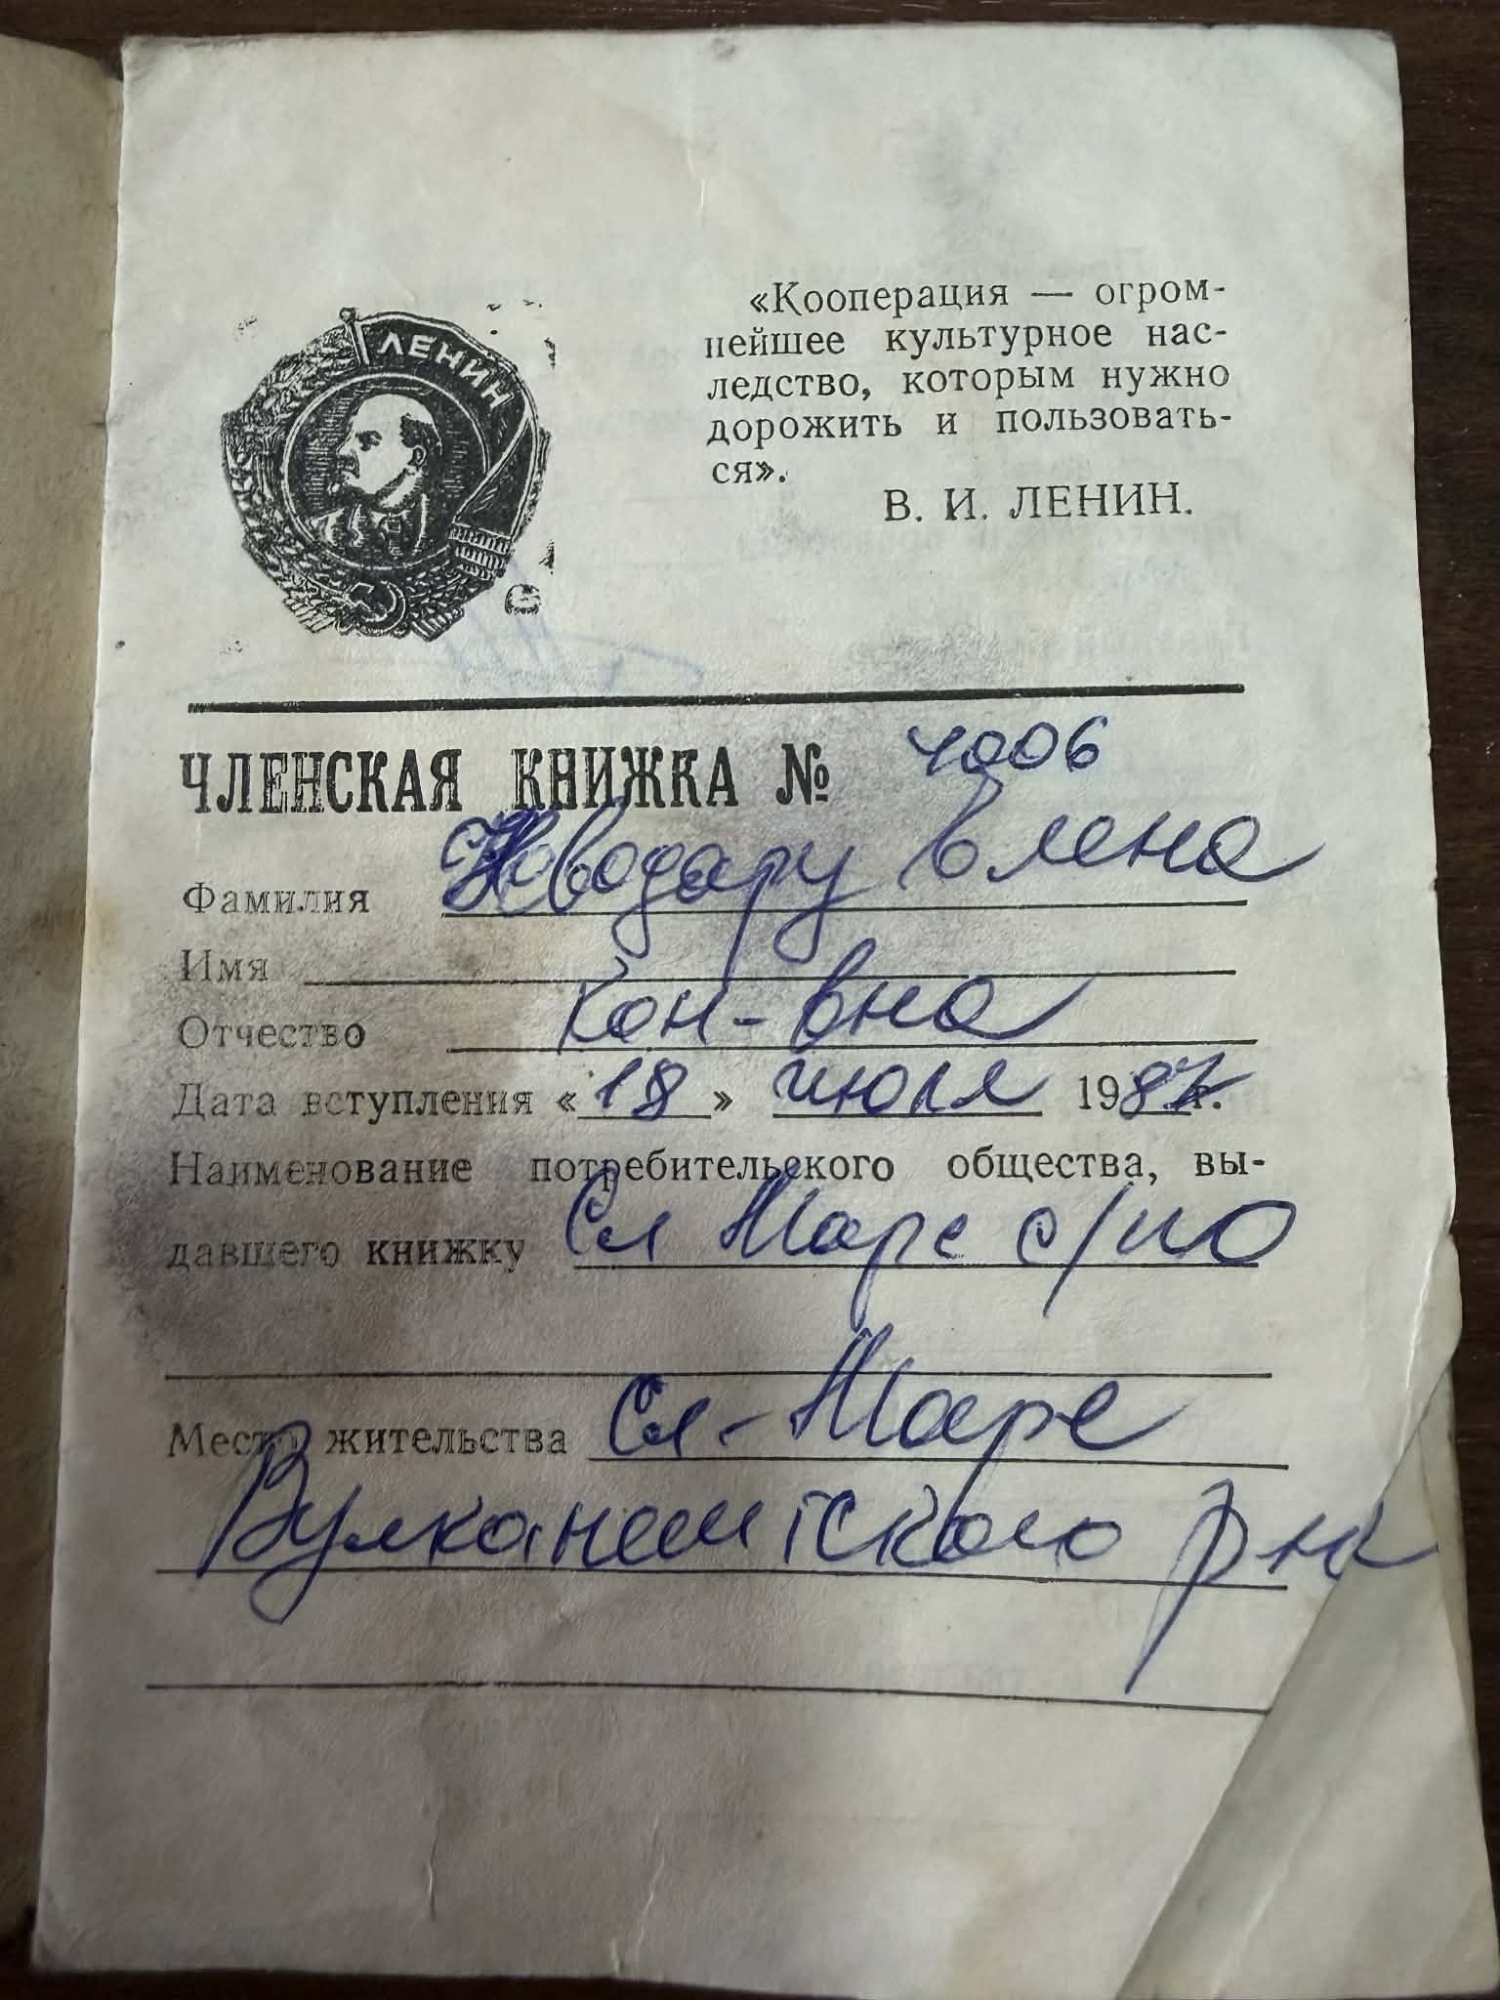 ЛЕНИН
«Кооперация — огром-
нейшее культурное нас-
ледство, которым нужно
дорожить и пользовать-
ся».
В. И. ЛЕНИН.
ЧЛЕНСКАЯ КНИЖКА № 4006
Фамилия Новодару Елена
Имя
Отчество Кон-вна
Дата вступления «18» июля 1987 г.
Наименование потребительского общества, вы-
давшего книжку Сл Маре с/по
Место жительства Сл-Маре
Вулканештского р-на